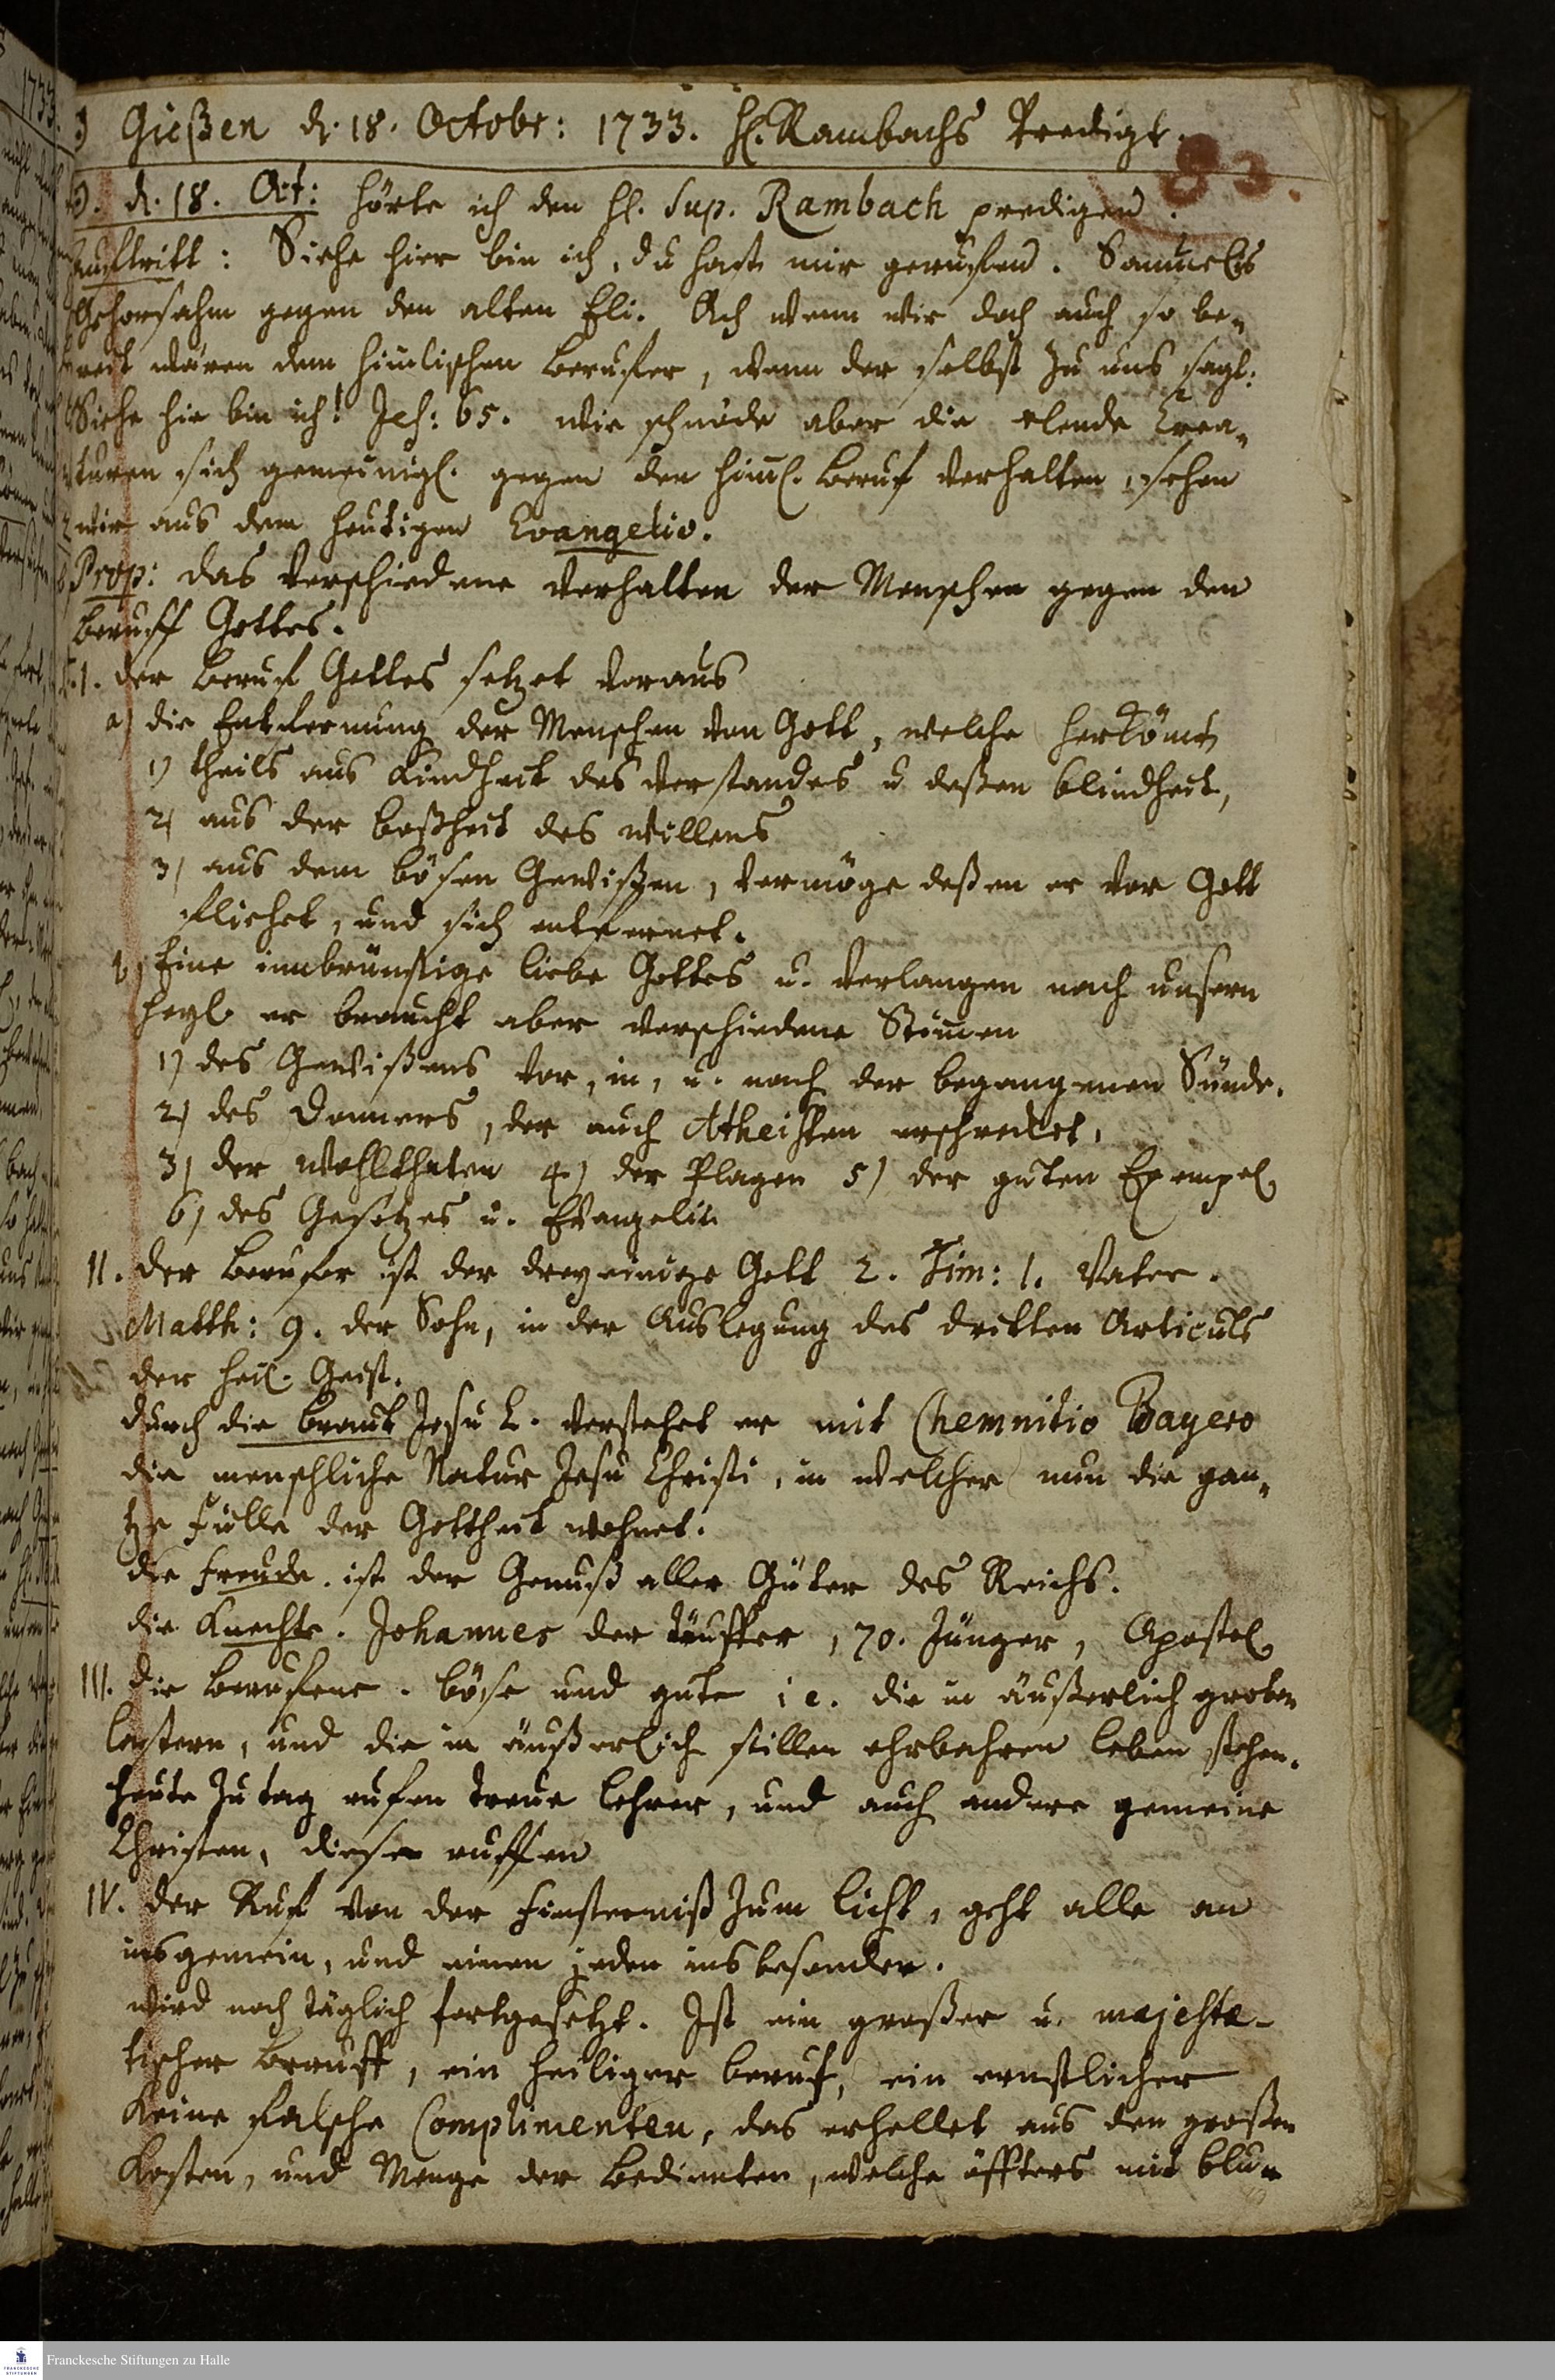 Gießen d. 18. Octobr: 1733. H. Rambachs Predigt.
83.
d. 18. Oct: hörte ich den H. Sup. Rambach predigen.
Aufftritt: Siehe hier bin ich, du hast mir geruffen. Samuelis
Gehorsahm gegen den alten Eli. Ach wenn wir doch auch so be-
reit wären dem himlischen Berufer, wenn der selbst zu uns sagt:
Siehe hie bin ich! Jes: 65. wie schnöde aber die elende Crea-
turen sich gemeinigl. gegen den himl. Beruf verhalten, sehen
wir aus dem heutigen Evangelio.
Prop: das verschiedene Verhalten der Menschen gegen den
Beruff Gottes.
1. der Beruf Gottes setzet voraus
a) die Entfernung der Menschen von Gott, welche herkömt
1) theils aus Kindheit des Verstandes u deßen blindheit,
2) aus der boßheit des willens
3) aus dem bösen Gewißen, vermöge deßen er vor Gott
fliehet, und sich entfernet.
b) Eine innbrünstige liebe Gottes u. verlangen nach unserm
Heyl. er braucht aber verschiedene Stimen
1) des Gewißens vor, in, u. nach der begangenen Sünde.
2) des Donners, der auch Atheisten erschrecket,
3) der Wohlthaten 4) der Plagen 5) der guten Exempel
6) des Gesetzes u. Evangelii
II. der Berufer ist der dreyeinige Gott 2. Tim: 1. Vater.
Matth: 9. der Sohn, in der Auslegung des dritten Articuls
der Heil. Geist.
durch die Braut Jesu C. verstehet er mit Chemnitio Bayero
die menschliche Natur Jesu Christi, in welcher nun die gan-
tze Fülle der Gottheit wohnet.
die Freude. ist der Genuß aller Güter des Reichs.
die Knechte. Johannes der Täuffer, 70. Jünger, Apostel
III. die Berufene. böse und gute i e. die in äußerlich groben
lastern, und die in äußerlich stillen ehrbahren leben stehen.
heute zu tag rufen treue lehrer, und auch andere gemeine
Christen, diese ruffen
IV. der Ruf von der Finsterniß zum licht, geht alle an
insgemein, und einen jeden ins besonder.
wird noch täglich fortgesetzt. Ist ein großer u. majestä-
tischer Beruff, ein heiliger Beruf, ein ernstlicher
keine falsche Complimenten, das erhellet aus den großen
Kosten, und Menge der Bedienten, welche öffters mit blu-
Franckesche Stiftungen zu Halle